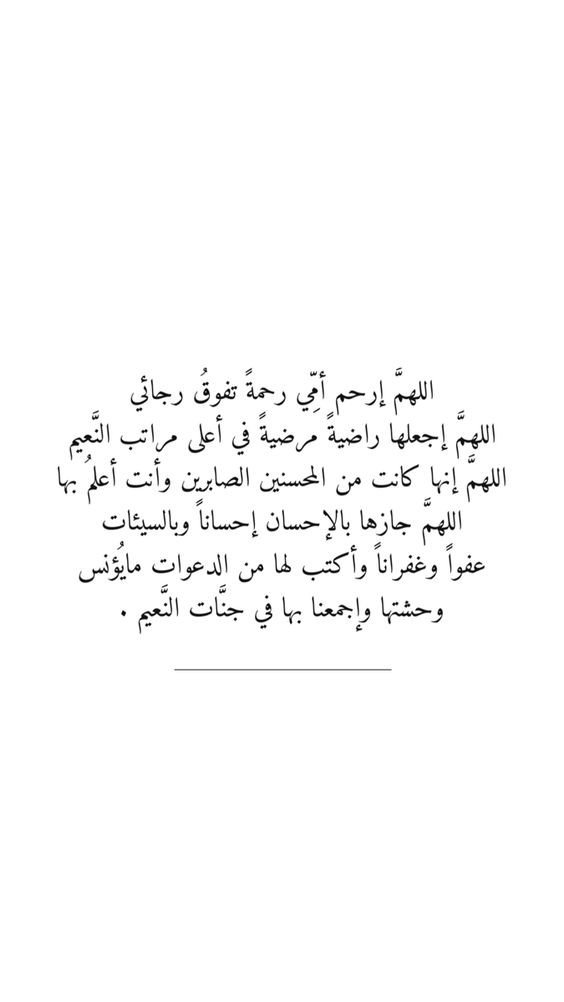 اللهمَّ إرحم أمِّي رحمةً تفوقُ رجائي
اللهمَّ إجعلها راضيةً مرضيةً في أعلى مراتب النَّعيم
اللهمَّ إنها كانت من المحسنين الصابرين وأنت أعلمُ بها
اللهمَّ جازها بالإحسان إحساناً وبالسيئات
عفواً وغفراناً وأكتب لها من الدعوات مايُؤنس
وحشتها وإجمعنا بها في جنَّات النَّعيم .